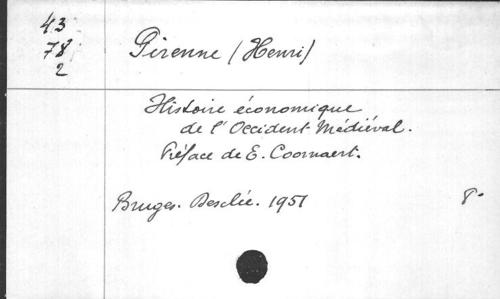 43
78
2
Pirenne (Henri)
Histoire économique
de l'Occident Médiéval.
Préface de E. Coornaert.
Bruges. Desclée. 1951 8°